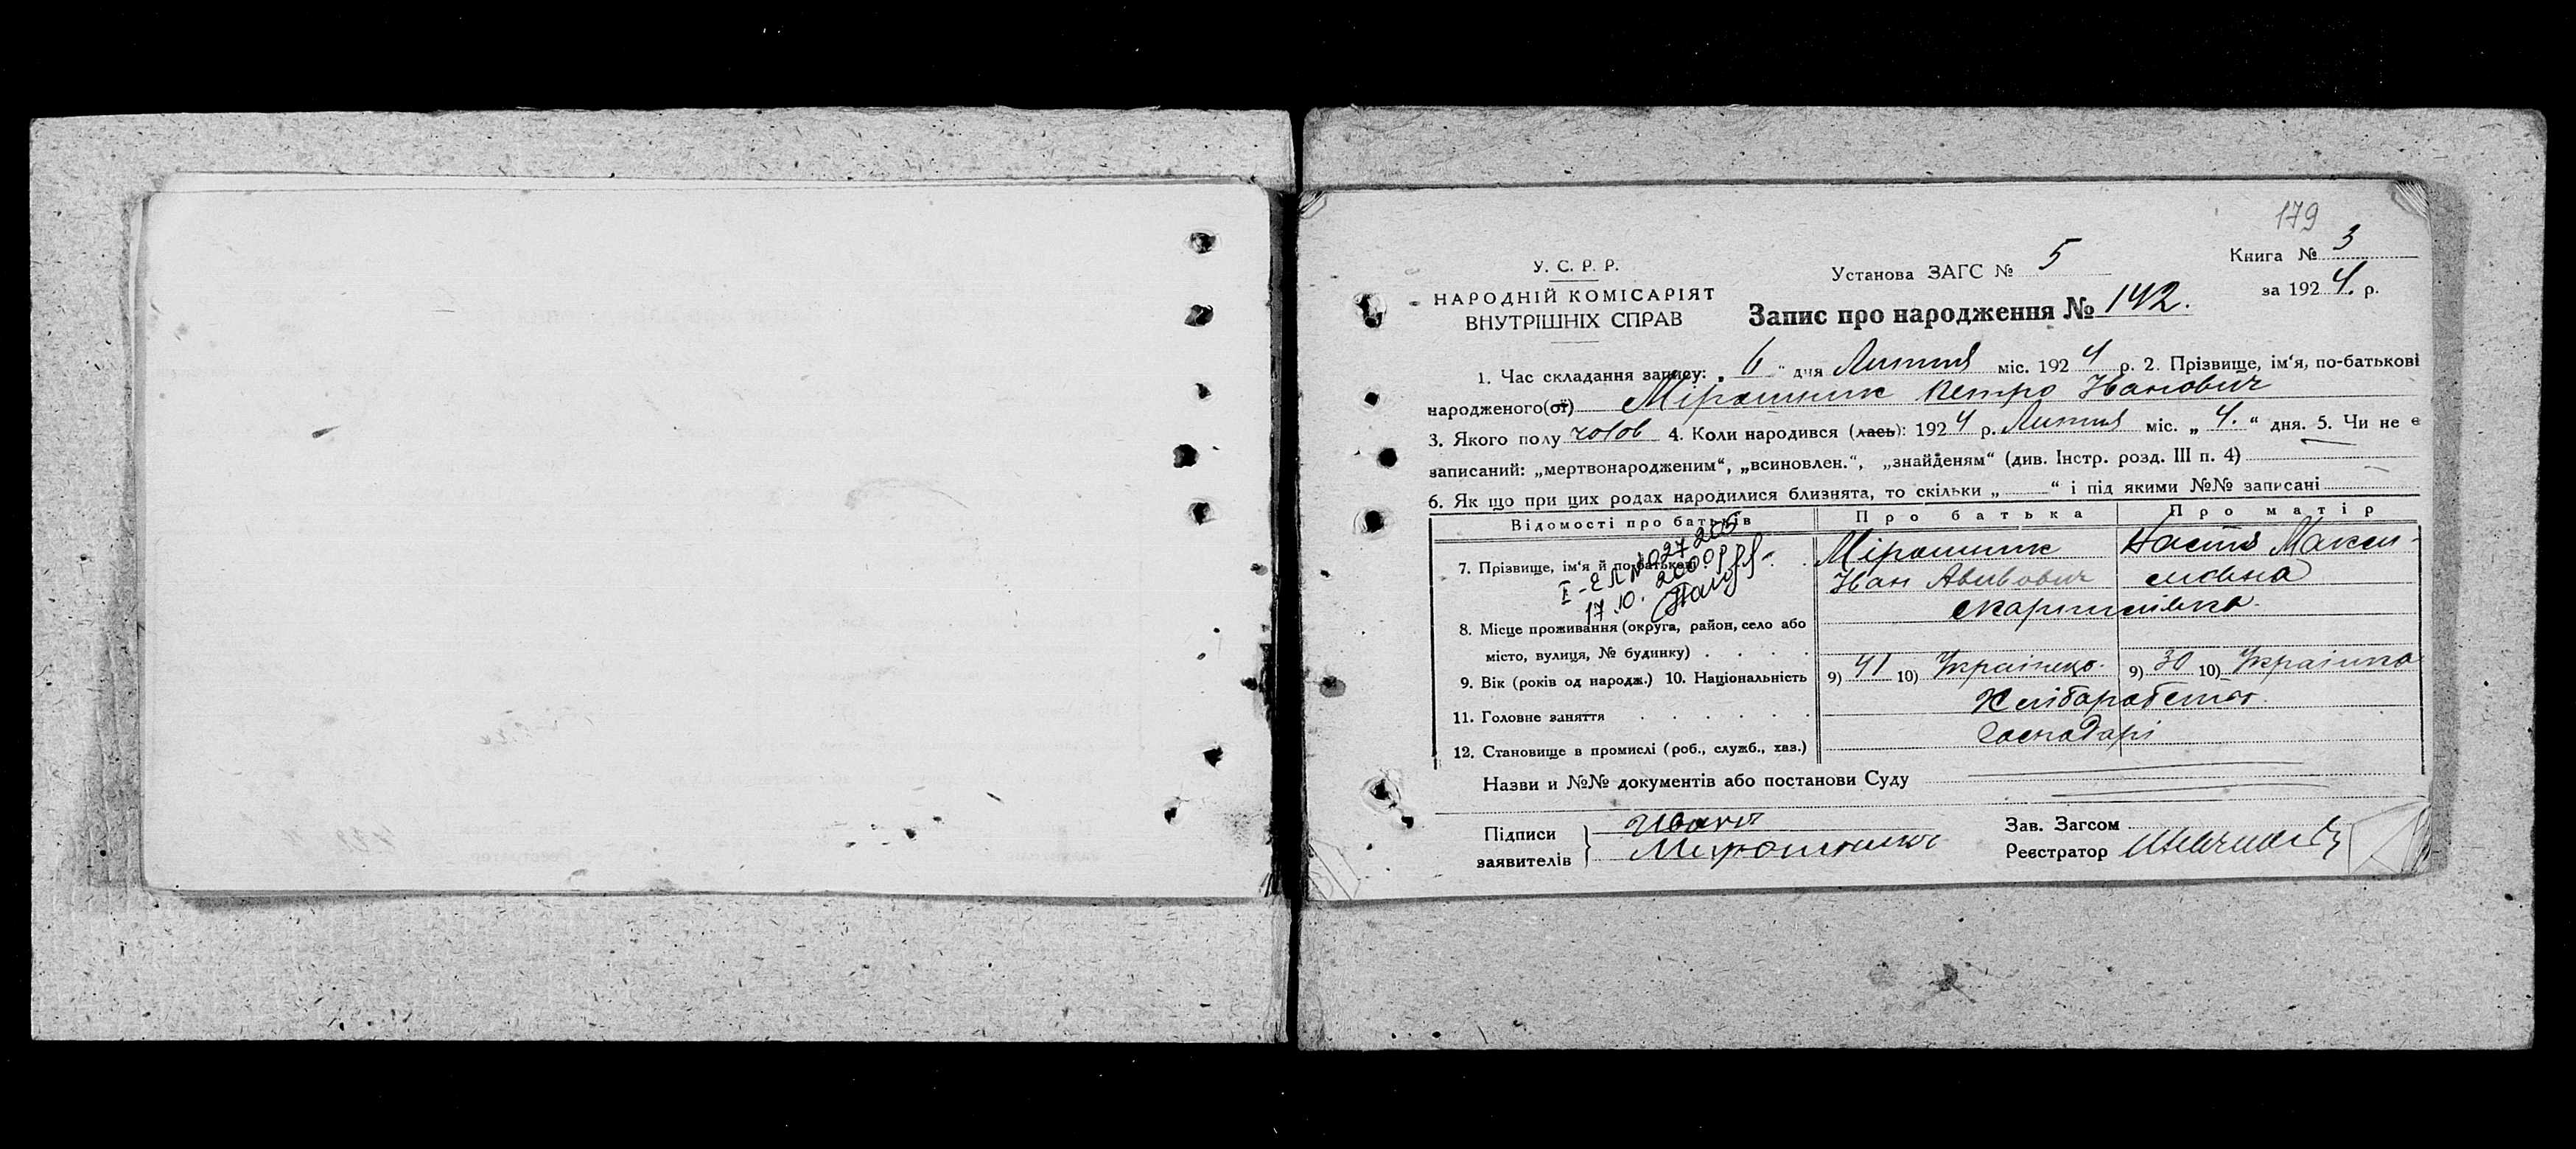 179
У. С. Р. Р.
НАРОДНІЙ КОМІСАРІЯТ
ВНУТРІШНІХ СПРАВ
Установа ЗАГС № 5
Книга № 3
за 1924. р.
Запис про народження № 142.
1. Час складання запису: „ 6 “ дня Липня міс. 1924 р. 2. Прізвище, ім‘я, по-батькові
народженого(ої) Мірошник Петро Іванович
3. Якого полу чолов 4. Коли народився (лась): 1924 р. Липня міс. „ 4. “ дня. 5. Чи не є
записаний: „мертвонародженим“, „всиновлен.“, „знайденям“ (див. Інстр. розд. III п. 4)
6. Як що при цих родах народилися близнята, то скільки „ “ і під якими №№ записані
Відомості про батьків Про батька Про матір
7. Прізвище, ім‘я й по-батькові Мірошник Настя Макси-
Іван Авивович мовна
I-ЕЛ № 027206
17.10.2000р.
8. Місце проживання (округа, район, село або
місто, вулиця, № будинку)
9. Вік (років од народж.) 10. Національність 9) 41 10) Українець. 9) 30 10) Українка
11. Головне заняття Хлібаробство.
12. Становище в промислі (роб., служб., хаз.) Господарі
Назви и №№ документів або постанови Суду
Підписи
заявителів
Иван
Мирошник
Зав. Загсом
Реєстратор